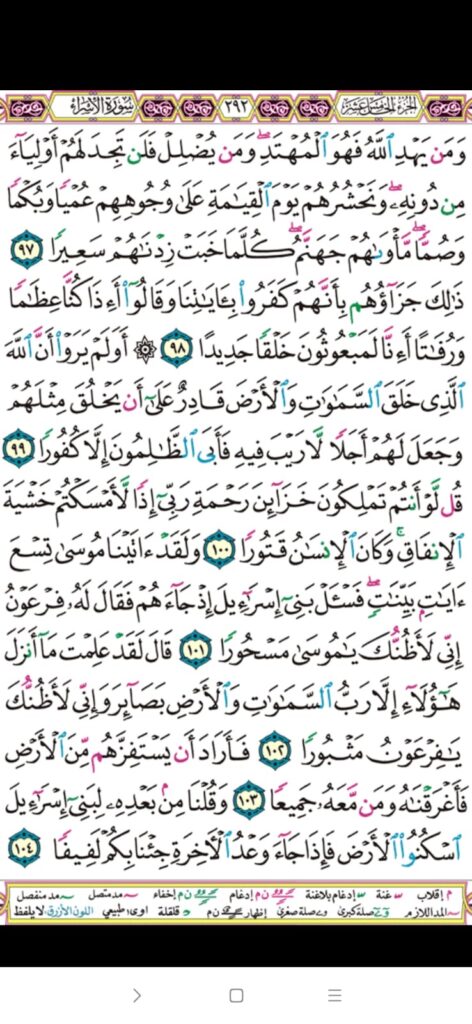 الجزء الخامس عشر ٢٩٢ سورة الإسراء
وَمَن يَهْدِ ٱللَّهُ فَهُوَ ٱلْمُهْتَدِ ۖ وَمَن يُضْلِلْ فَلَن تَجِدَ لَهُمْ أَوْلِيَآءَ
مِن دُونِهِۦ ۖ وَنَحْشُرُهُمْ يَوْمَ ٱلْقِيَـٰمَةِ عَلَىٰ وُجُوهِهِمْ عُمْيًا وَبُكْمًا
وَصُمًّا ۖ مَّأْوَىٰهُمْ جَهَنَّمُ ۖ كُلَّمَا خَبَتْ زِدْنَـٰهُمْ سَعِيرًا ٩٧
ذَٰلِكَ جَزَآؤُهُم بِأَنَّهُمْ كَفَرُوا۟ بِـَٔايَـٰتِنَا وَقَالُوٓا۟ أَءِذَا كُنَّا عِظَـٰمًا
وَرُفَـٰتًا أَءِنَّا لَمَبْعُوثُونَ خَلْقًا جَدِيدًا ٩٨ ۞ أَوَلَمْ يَرَوْا۟ أَنَّ ٱللَّهَ
ٱلَّذِى خَلَقَ ٱلسَّمَـٰوَٰتِ وَٱلْأَرْضَ قَادِرٌ عَلَىٰٓ أَن يَخْلُقَ مِثْلَهُمْ
وَجَعَلَ لَهُمْ أَجَلًا لَّا رَيْبَ فِيهِ فَأَبَى ٱلظَّـٰلِمُونَ إِلَّا كُفُورًا ٩٩
قُل لَّوْ أَنتُمْ تَمْلِكُونَ خَزَآئِنَ رَحْمَةِ رَبِّىٓ إِذًا لَّأَمْسَكْتُمْ خَشْيَةَ
ٱلْإِنفَاقِ ۚ وَكَانَ ٱلْإِنسَـٰنُ قَتُورًا ١٠٠ وَلَقَدْ ءَاتَيْنَا مُوسَىٰ تِسْعَ
ءَايَـٰتٍۭ بَيِّنَـٰتٍ ۖ فَسْـَٔلْ بَنِىٓ إِسْرَٰٓءِيلَ إِذْ جَآءَهُمْ فَقَالَ لَهُۥ فِرْعَوْنُ
إِنِّى لَأَظُنُّكَ يَـٰمُوسَىٰ مَسْحُورًا ١٠١ قَالَ لَقَدْ عَلِمْتَ مَآ أَنزَلَ
هَـٰٓؤُلَآءِ إِلَّا رَبُّ ٱلسَّمَـٰوَٰتِ وَٱلْأَرْضِ بَصَآئِرَ وَإِنِّى لَأَظُنُّكَ
يَـٰفِرْعَوْنُ مَثْبُورًا ١٠٢ فَأَرَادَ أَن يَسْتَفِزَّهُم مِّنَ ٱلْأَرْضِ
فَأَغْرَقْنَـٰهُ وَمَن مَّعَهُۥ جَمِيعًا ١٠٣ وَقُلْنَا مِنۢ بَعْدِهِۦ لِبَنِىٓ إِسْرَٰٓءِيلَ
ٱسْكُنُوا۟ ٱلْأَرْضَ فَإِذَا جَآءَ وَعْدُ ٱلْـَٔاخِرَةِ جِئْنَا بِكُمْ لَفِيفًا ١٠٤
م إقلاب غنة إدغام بلاغنة ن م إدغام ن م إخفاء مد متصل مد منفصل
المد اللازم صلة كبرى صلة صغرى إظهار ن م قلقلة اوى طبيعي اللون الأزرق لا يلفظ